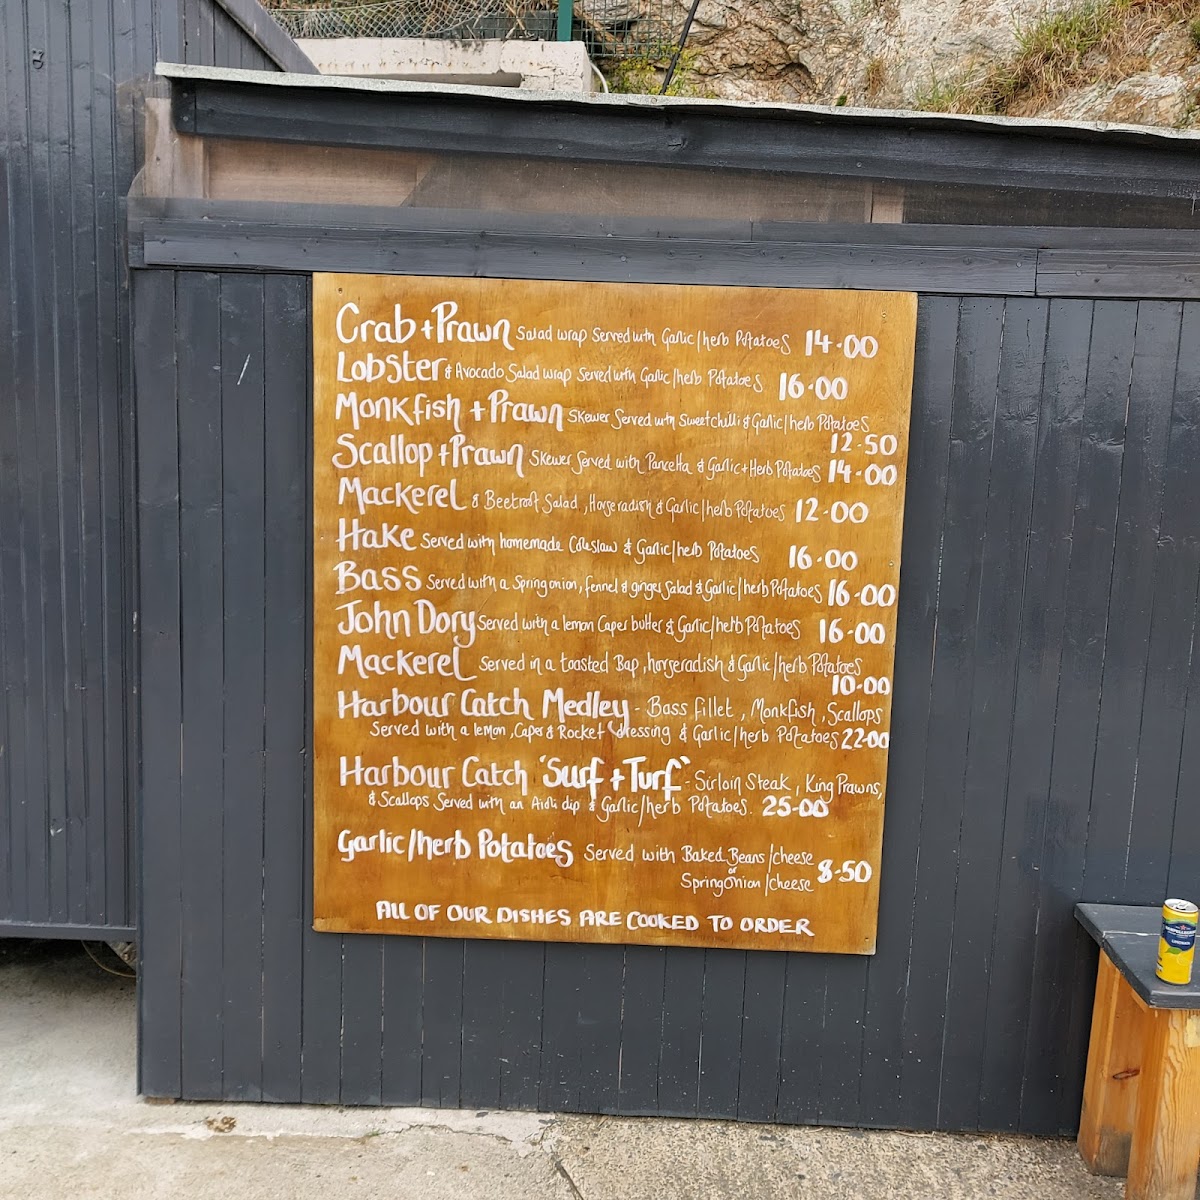 Crab + Prawn Salad wrap Served with Garlic/herb Potatoes 14-00
Lobster & Avocado Salad wrap Served with Garlic/herb Potatoes 16-00
Monkfish + Prawn Skewer Served with Sweetchilli & Garlic/herb Potatoes
12-50
Scallop + Prawn Skewer Served with Pancetta & Garlic + Herb Potatoes 14-00
Mackerel & Beetroot Salad, Horseradish & Garlic/herb Potatoes 12-00
Hake Served with homemade Coleslaw & Garlic/herb Potatoes 16-00
Bass Served with a Spring onion, fennel & ginger Salad & Garlic/herb Potatoes 16-00
John Dory Served with a lemon Caper butter & Garlic/herb Potatoes 16-00
Mackerel Served in a toasted Bap, horseradish & Garlic/herb Potatoes
10-00
Harbour Catch Medley - Bass fillet, Monkfish, Scallops
Served with a lemon, Caper & Rocket dressing & Garlic/herb Potatoes 22-00
Harbour Catch 'Surf + Turf' - Sirloin Steak, King Prawns,
& Scallops Served with an Aioli dip & Garlic/herb Potatoes. 25-00
Garlic/herb Potatoes Served with Baked Beans/cheese 8-50
or
Springonion/cheese
ALL OF OUR DISHES ARE COOKED TO ORDER